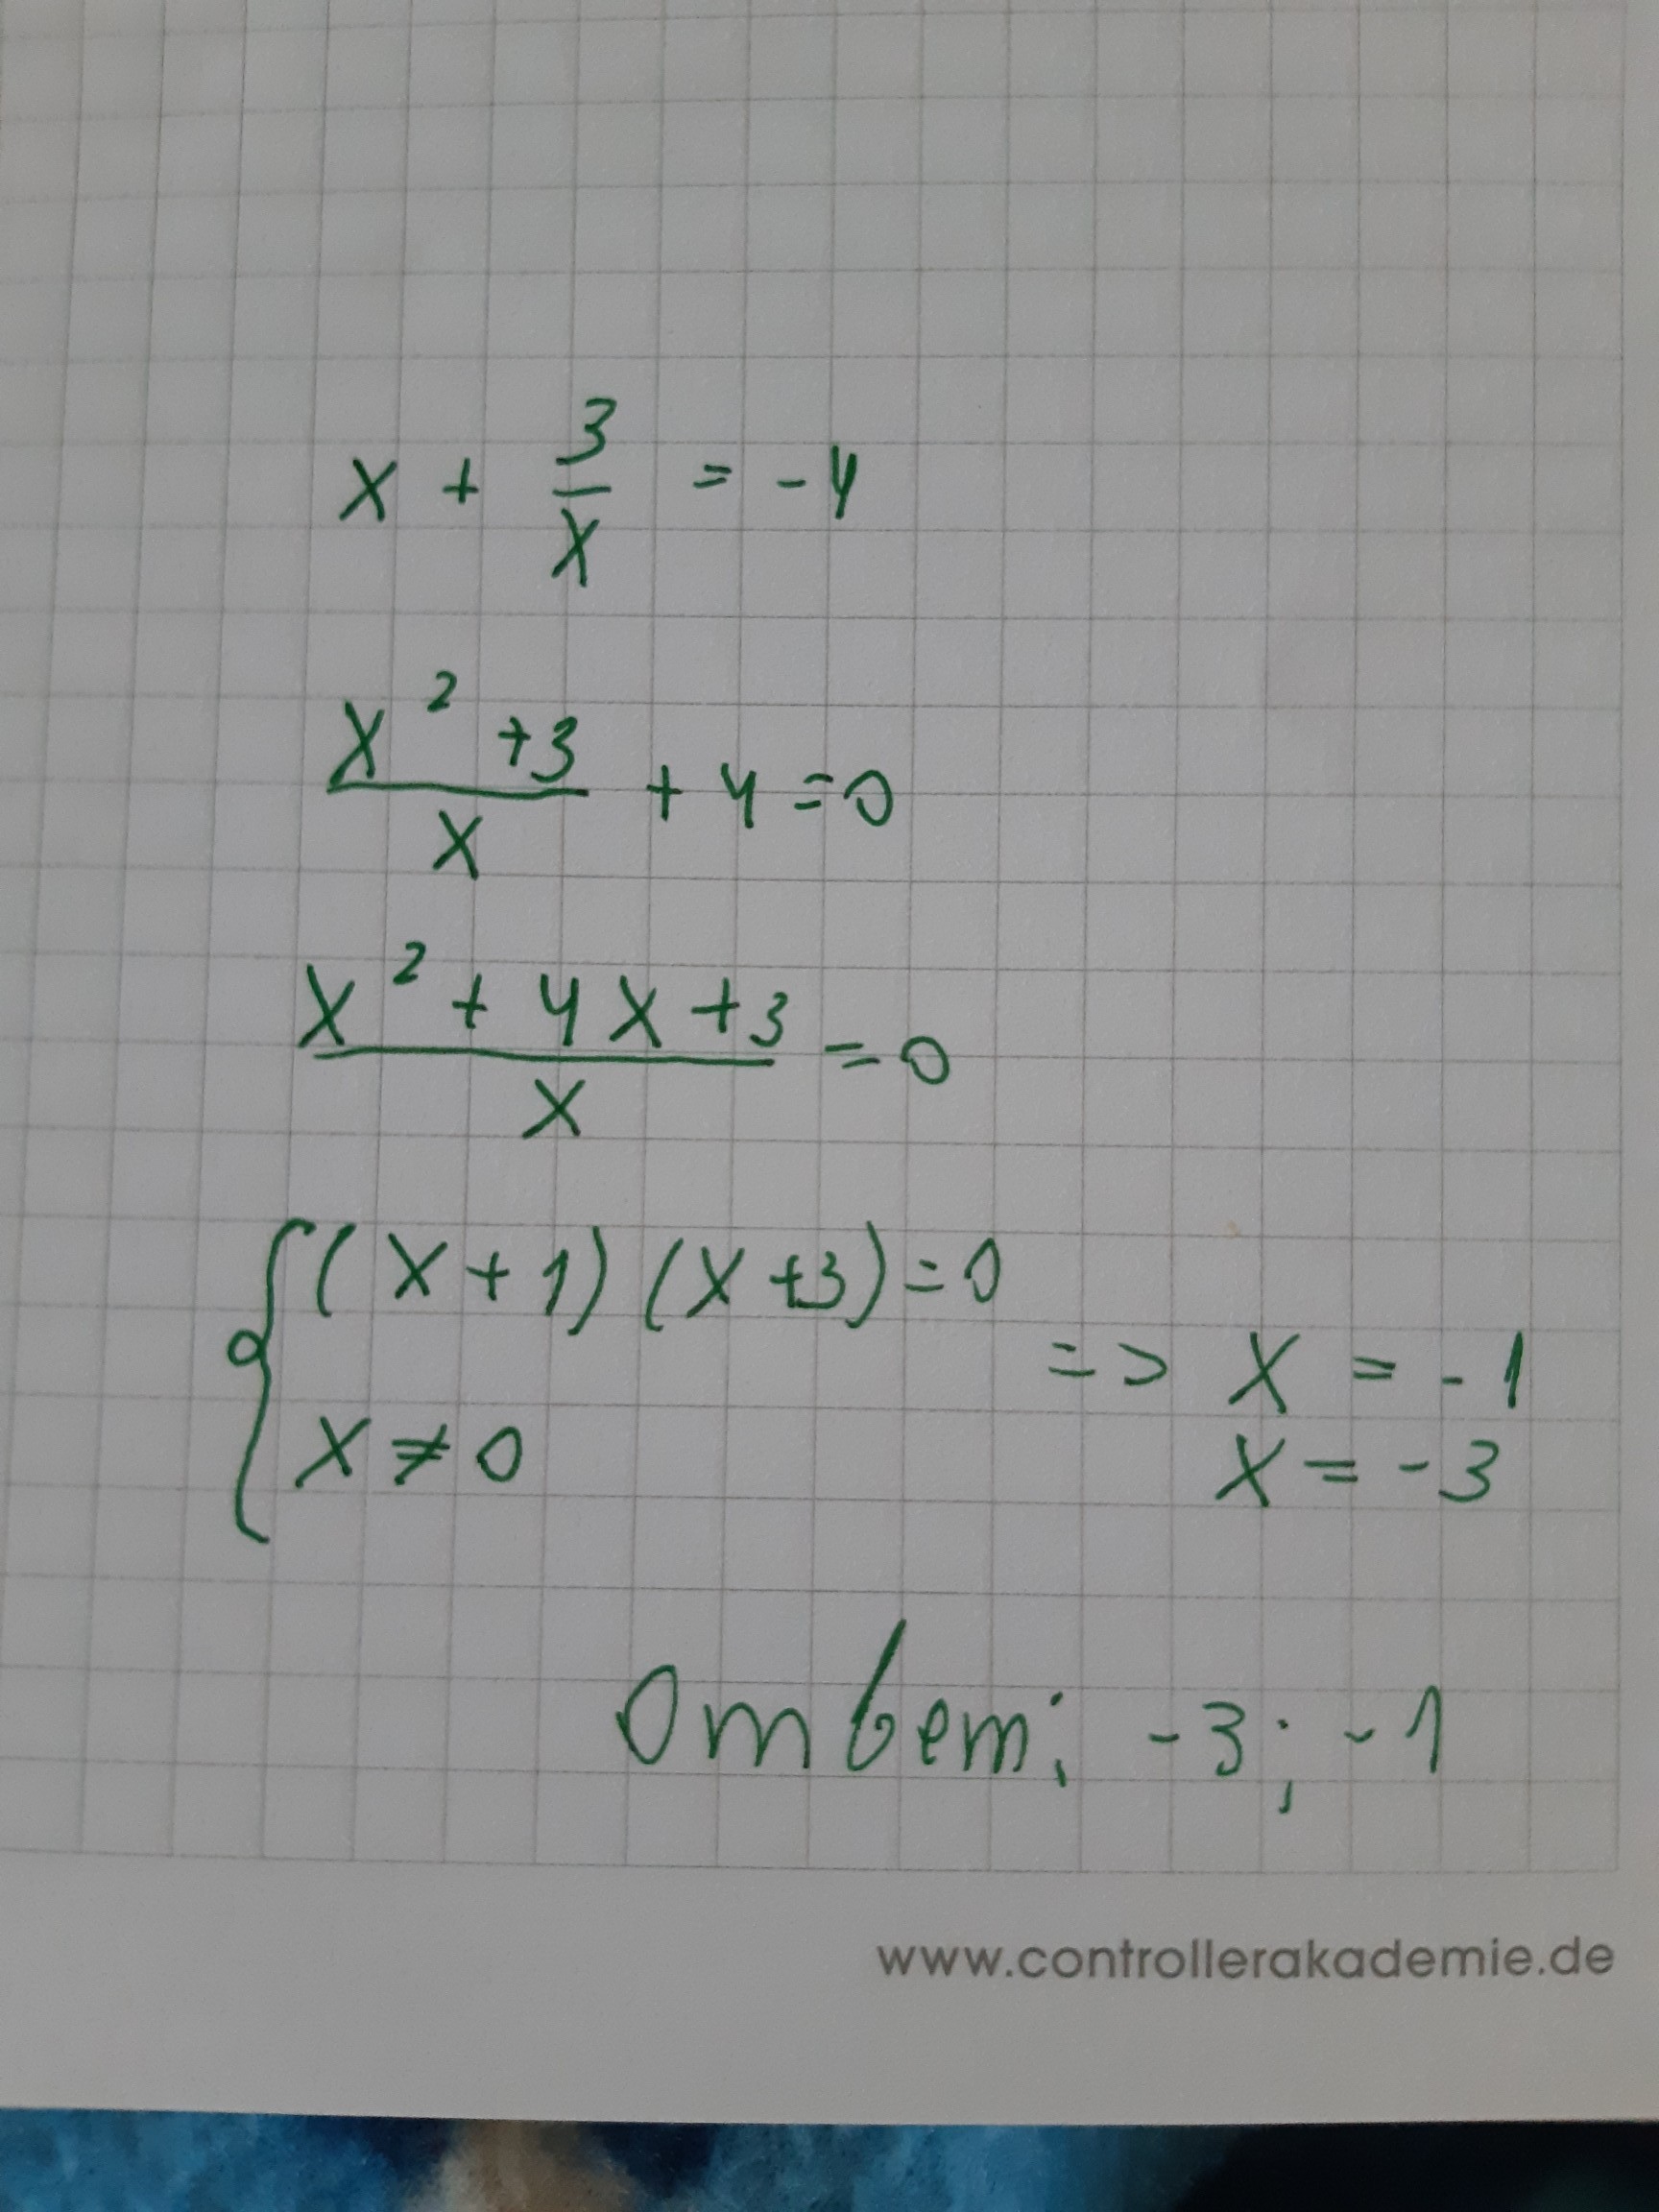 x + 3/x = -4
(x² + 3)/x + 4 = 0
(x² + 4x + 3)/x = 0
{ (x + 1) (x + 3) = 0
x ≠ 0
=> x = -1
x = -3
Ответ: -3; -1
www.controllerakademie.de